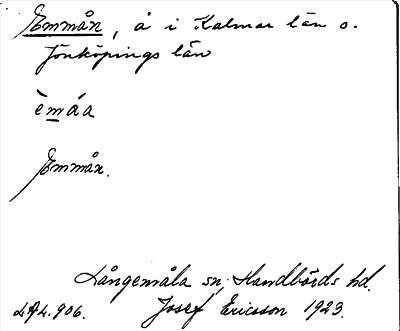 Emmån, å i Kalmar län o.
Jönköpings län
èmáa
Emmån.
Långemåla sn, Handbörds hd.
LAL. 906. Josef Ericsson 1923.